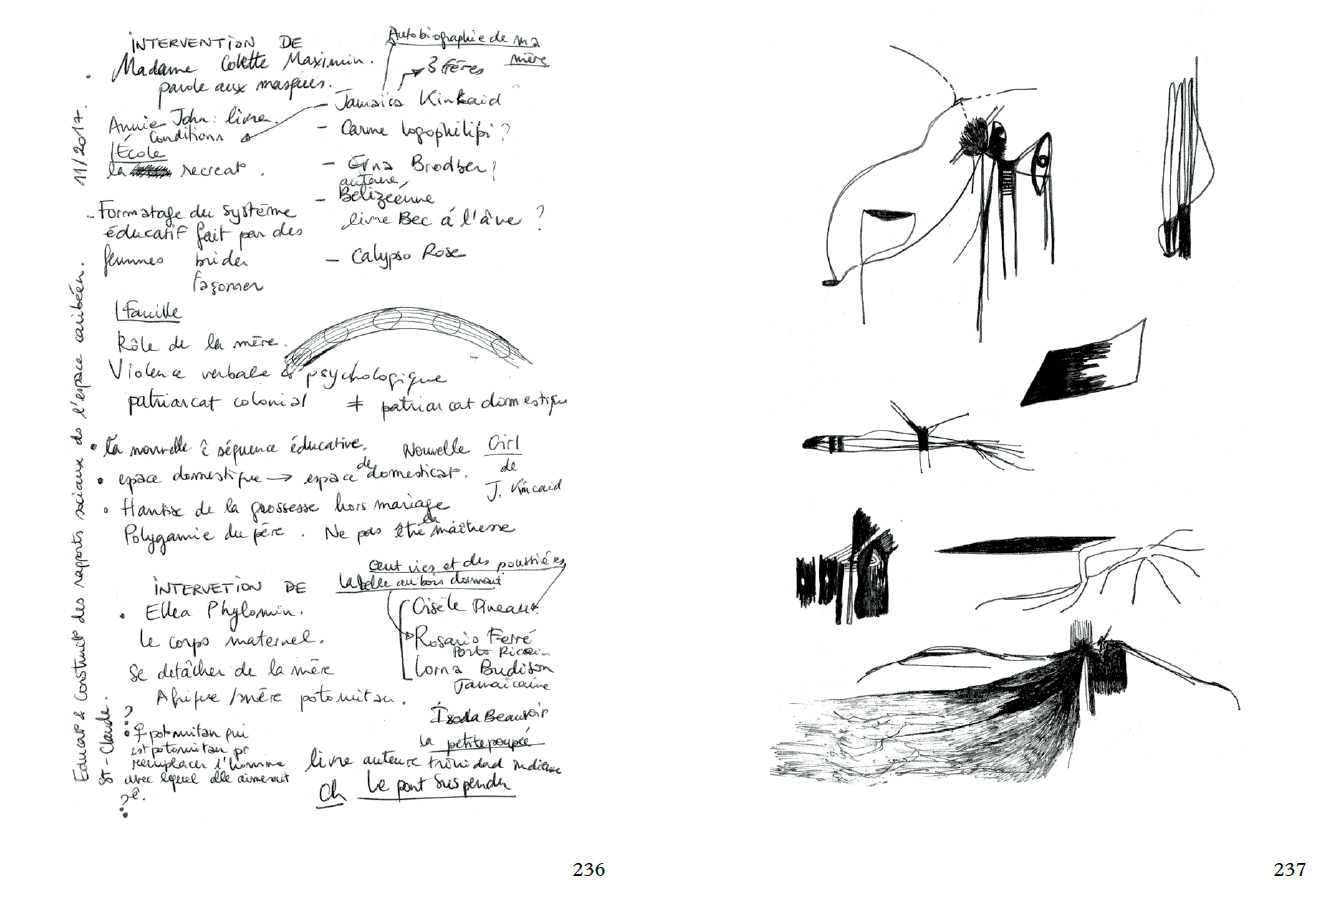 INTERVENTION DE
Madame Colette Maximin.
parole aux masques.
Annie John : livre.
Conditions
l'École
la recreat°.
- Formatage du système
éducatif fait par des
femmes brider
façonner
Autobiographie de ma
mère
3 fères
- Jamaica Kinkaid
- Carine logophilipi ?
- Erna Brodber ?
auteure
- Belizéenne
livre Bec á l'âve ?
- Calypso Rose
l famille
Rôle de la mère.
Violence verbale & psychologique
patriarcat colonial ≠ patriarcat domestique
• la nouvelle ê séquence éducative. Nouvelle Girl
de
J. Kincaid
• espace domestique → espace de domesticat°.
• Hantise de la grossesse hors mariage
Polygamie du père. Ne pas être la maîtresse
INTERVETION DE
• Ellea Phylomin.
le corps maternel.
Se detâcher de la mère
Afrique / mère potomitan.
? ♀ potomitan qui
est potomitan pr
remplacer l'homme
avec lequel elle aimerait
ê.
Cent vies et des poussières
la belle au bois dormant
Gisèle Pineau.
Rosario Ferré
Porto Ricain
Lorna Budison
Jamaïcaine
Isoda Beauvoir
la petite poupée
livre auteure trinidad indienne
Ch Le pont Suspendu
Educat° & Construit° des rapports sociaux ds l'espace caribéen. 11/2017.
St-Claude.
236
237